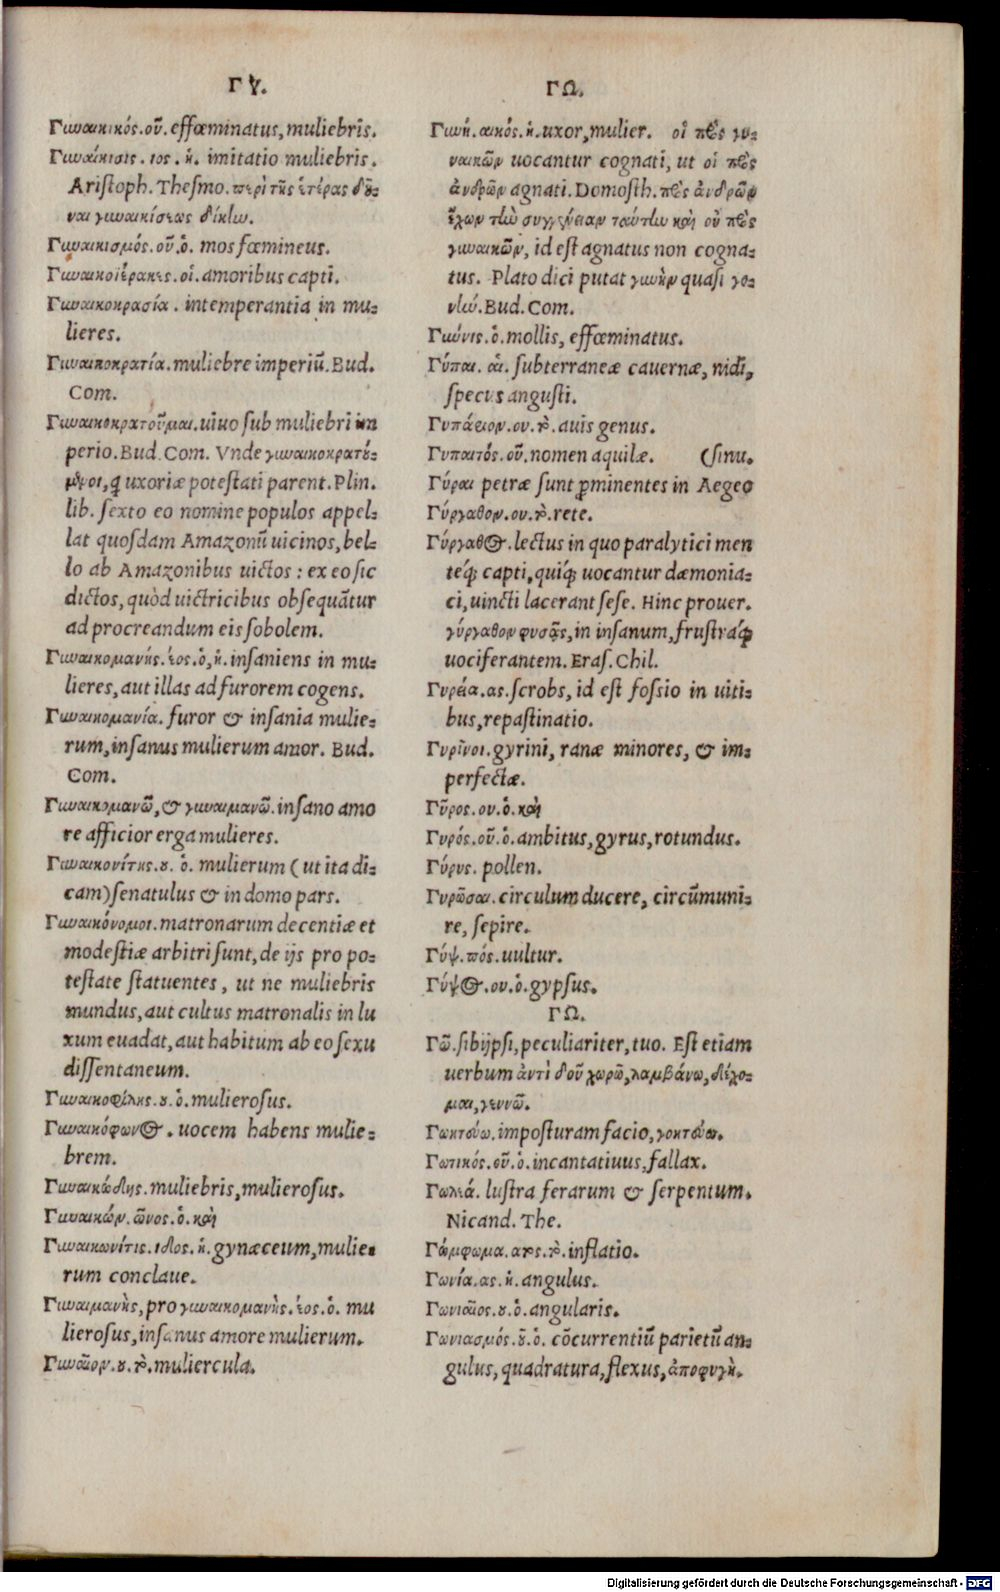 ΓΥ.
Γυναικικός.οῦ.effœminatus,muliebris.
Γυναίκισις.ιος.ἡ. imitatio muliebris.
Aristoph.Thesmo.περὶ τῆς ἑτέρας δοῦ-
ναι γυναικίσεως δίκην.
Γυναικισμός.οῦ.ὁ. mos fœmineus.
Γυναικοϊέρακες.οἱ.amoribus capti.
Γυναικοκρασία. intemperantia in mu-
lieres.
Γυναικοκρατία.muliebre imperiū.Bud.
Com.
Γυναικοκρατοῦμαι.uiuo sub muliebri im
perio.Bud.Com. Vnde γυναικοκρατού-
μενοι,q̃ uxoriæ potestati parent.Plin.
lib. sexto eo nomine populos appel-
lat quosdam Amazonū uicinos,bel-
lo ab Amazonibus uictos : ex eo sic
dictos,quòd uictricibus obsequātur
ad procreandum eis sobolem.
Γυναικομανής.έος.ὁ,ἡ.insaniens in mu-
lieres,aut illas ad furorem cogens.
Γυναικομανία. furor & insania mulie-
rum,insanus mulierum amor. Bud.
Com.
Γυναικομανῶ,& γυναιμανῶ.insano amo
re afficior erga mulieres.
Γυναικονίτης.ου. ὁ. mulierum (ut ita di-
cam) senatulus & in domo pars.
Γυναικόνομοι.matronarum decentiæ et
modestiæ arbitri sunt,de ijs pro po-
testate statuentes, ut ne muliebris
mundus,aut cultus matronalis in lu
xum euadat,aut habitum ab eo sexu
dissentaneum.
Γυναικοφίλης.ου.ὁ.mulierosus.
Γυναικόφωνος. uocem habens mulie-
brem.
Γυναικώδης.muliebris,mulierosus.
Γυναικών.ῶνος.ὁ.καὶ
Γυναικωνίτις.ιδος.ἡ.gynæceum,mulie-
rum conclaue.
Γυναιμανὴς,pro γυναικομανὴς.έος.ὁ. mu
lierosus,insanus amore mulierum.
Γυναῖον.ου.τὸ.muliercula.
ΓΩ.
Γυνή.αικός.ἡ.uxor,mulier. οἱ πρὸς γυ-
ναικῶν uocantur cognati, ut οἱ πρὸς
ἀνδρῶν agnati.Domosth.πρὸς ἀνδρῶν
ἔχων τὴν συγγένειαν ταύτην καὶ οὐ πρὸς
γυναικῶν, id est agnatus non cogna-
tus. Plato dici putat γυνὴν quasi γο-
νήν.Bud.Com.
Γύννις.ὁ.mollis, effœminatus.
Γύπαι. αἱ. subterraneæ cauernæ, nidi,
specus angusti.
Γυπάριον.ου.τὸ.auis genus.
Γυπαιτός.οῦ.nomen aquilæ. (sinu.
Γύραι petræ sunt ꝓminentes in Aegeo
Γύργαθον.ου.τὸ.rete.
Γύργαθος.lectus in quo paralytici men
teq́; capti,quiq́; uocantur dæmonia-
ci,uincti lacerant sese. Hinc prouer.
γύργαθον φυσᾷς,in insanum,frustraq́;
uociferantem.Eras.Chil.
Γυρεία.ας.scrobs, id est fossio in uiti-
bus,repastinatio.
Γυρῖνοι.gyrini, ranæ minores, & im-
perfectæ.
Γῦρος.ου.ὁ.καὶ
Γυρός.οῦ.ὁ.ambitus,gyrus,rotundus.
Γύρις. pollen.
Γυρῶσαι.circulum ducere, circūmuni-
re, sepire.
Γύψ.πός.uultur.
Γύψος.ου.ὁ.gypsus.
ΓΩ.
Γῶ.sibijpsi,peculiariter,tuo. Est etiam
uerbum ἀντὶ δοῦ χωρῶ,λαμβάνω,δέχο-
μαι,γεννῶ.
Γωκτεύω.imposturam facio,γοκτεύω.
Γωτικός.οῦ.ὁ.incantatiuus,fallax.
Γωλειά. lustra ferarum & serpentum.
Nicand. The.
Γώμφωμα.ατος.τὸ.inflatio.
Γωνία.ας.ἡ.angulus.
Γωνιαῖος.ου.ὁ.angularis.
Γωνιασμός.οῦ.ὁ. cōcurrentiū parietū an-
gulus,quadratura,flexus,ἀποφυγὴ.
Digitalisierung gefördert durch die Deutsche Forschungsgemeinschaft - DFG